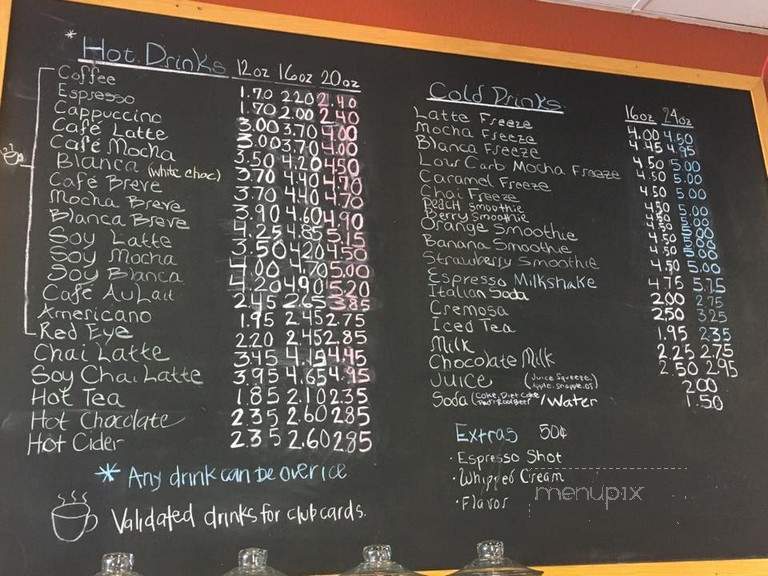 * Hot Drinks 12oz 16oz 20oz
Coffee 1.70 2.20 2.40
Espresso 1.70 2.00 2.40
Cappuccino 3.00 3.70 4.00
Café Latte 3.00 3.70 4.00
Café Mocha 3.50 4.20 4.50
Blanca (white choc) 3.70 4.40 4.70
Café Breve 3.70 4.40 4.70
Mocha Breve 3.90 4.60 4.90
Blanca Breve 4.25 4.85 5.15
Soy Latte 3.50 4.20 4.50
Soy Mocha 4.00 4.70 5.00
Soy Blanca 4.20 4.90 5.20
Café AuLait 2.45 2.65 3.85
Americano 1.95 2.45 2.75
Red Eye 2.20 2.45 2.85
Chai Latte 3.45 4.15 4.45
Soy Chai Latte 3.95 4.65 4.95
Hot Tea 1.85 2.10 2.35
Hot Chocolate 2.35 2.60 2.85
Hot Cider 2.35 2.60 2.85
* Any drink can be over ice
Validated drinks for club cards.
Cold Drinks 16oz 24oz
Latte Freeze 4.00 4.50
Mocha Freeze 4.45 4.95
Blanca Freeze 4.50 5.00
Low Carb Mocha Freeze 4.50 5.00
Caramel Freeze 4.50 5.00
Chai Freeze 4.50 5.00
Peach Smoothie 4.50 5.00
Berry Smoothie 4.50 5.00
Orange Smoothie 4.50 5.00
Banana Smoothie 4.50 5.00
Strawberry Smoothie 4.50 5.00
Espresso Milkshake 4.75 5.75
Italian Soda 2.00 2.75
Cremosa 2.50 3.25
Iced Tea 1.95 2.35
Milk 2.25 2.75
Chocolate Milk 2.50 2.95
Juice (Juice Squeeze, Apple, Snapple, OJ) 2.00
Soda (Coke, Diet Coke, RootBeer) / Water 1.50
Extras 50¢
· Espresso Shot
· Whipped Cream
· Flavor
menupix